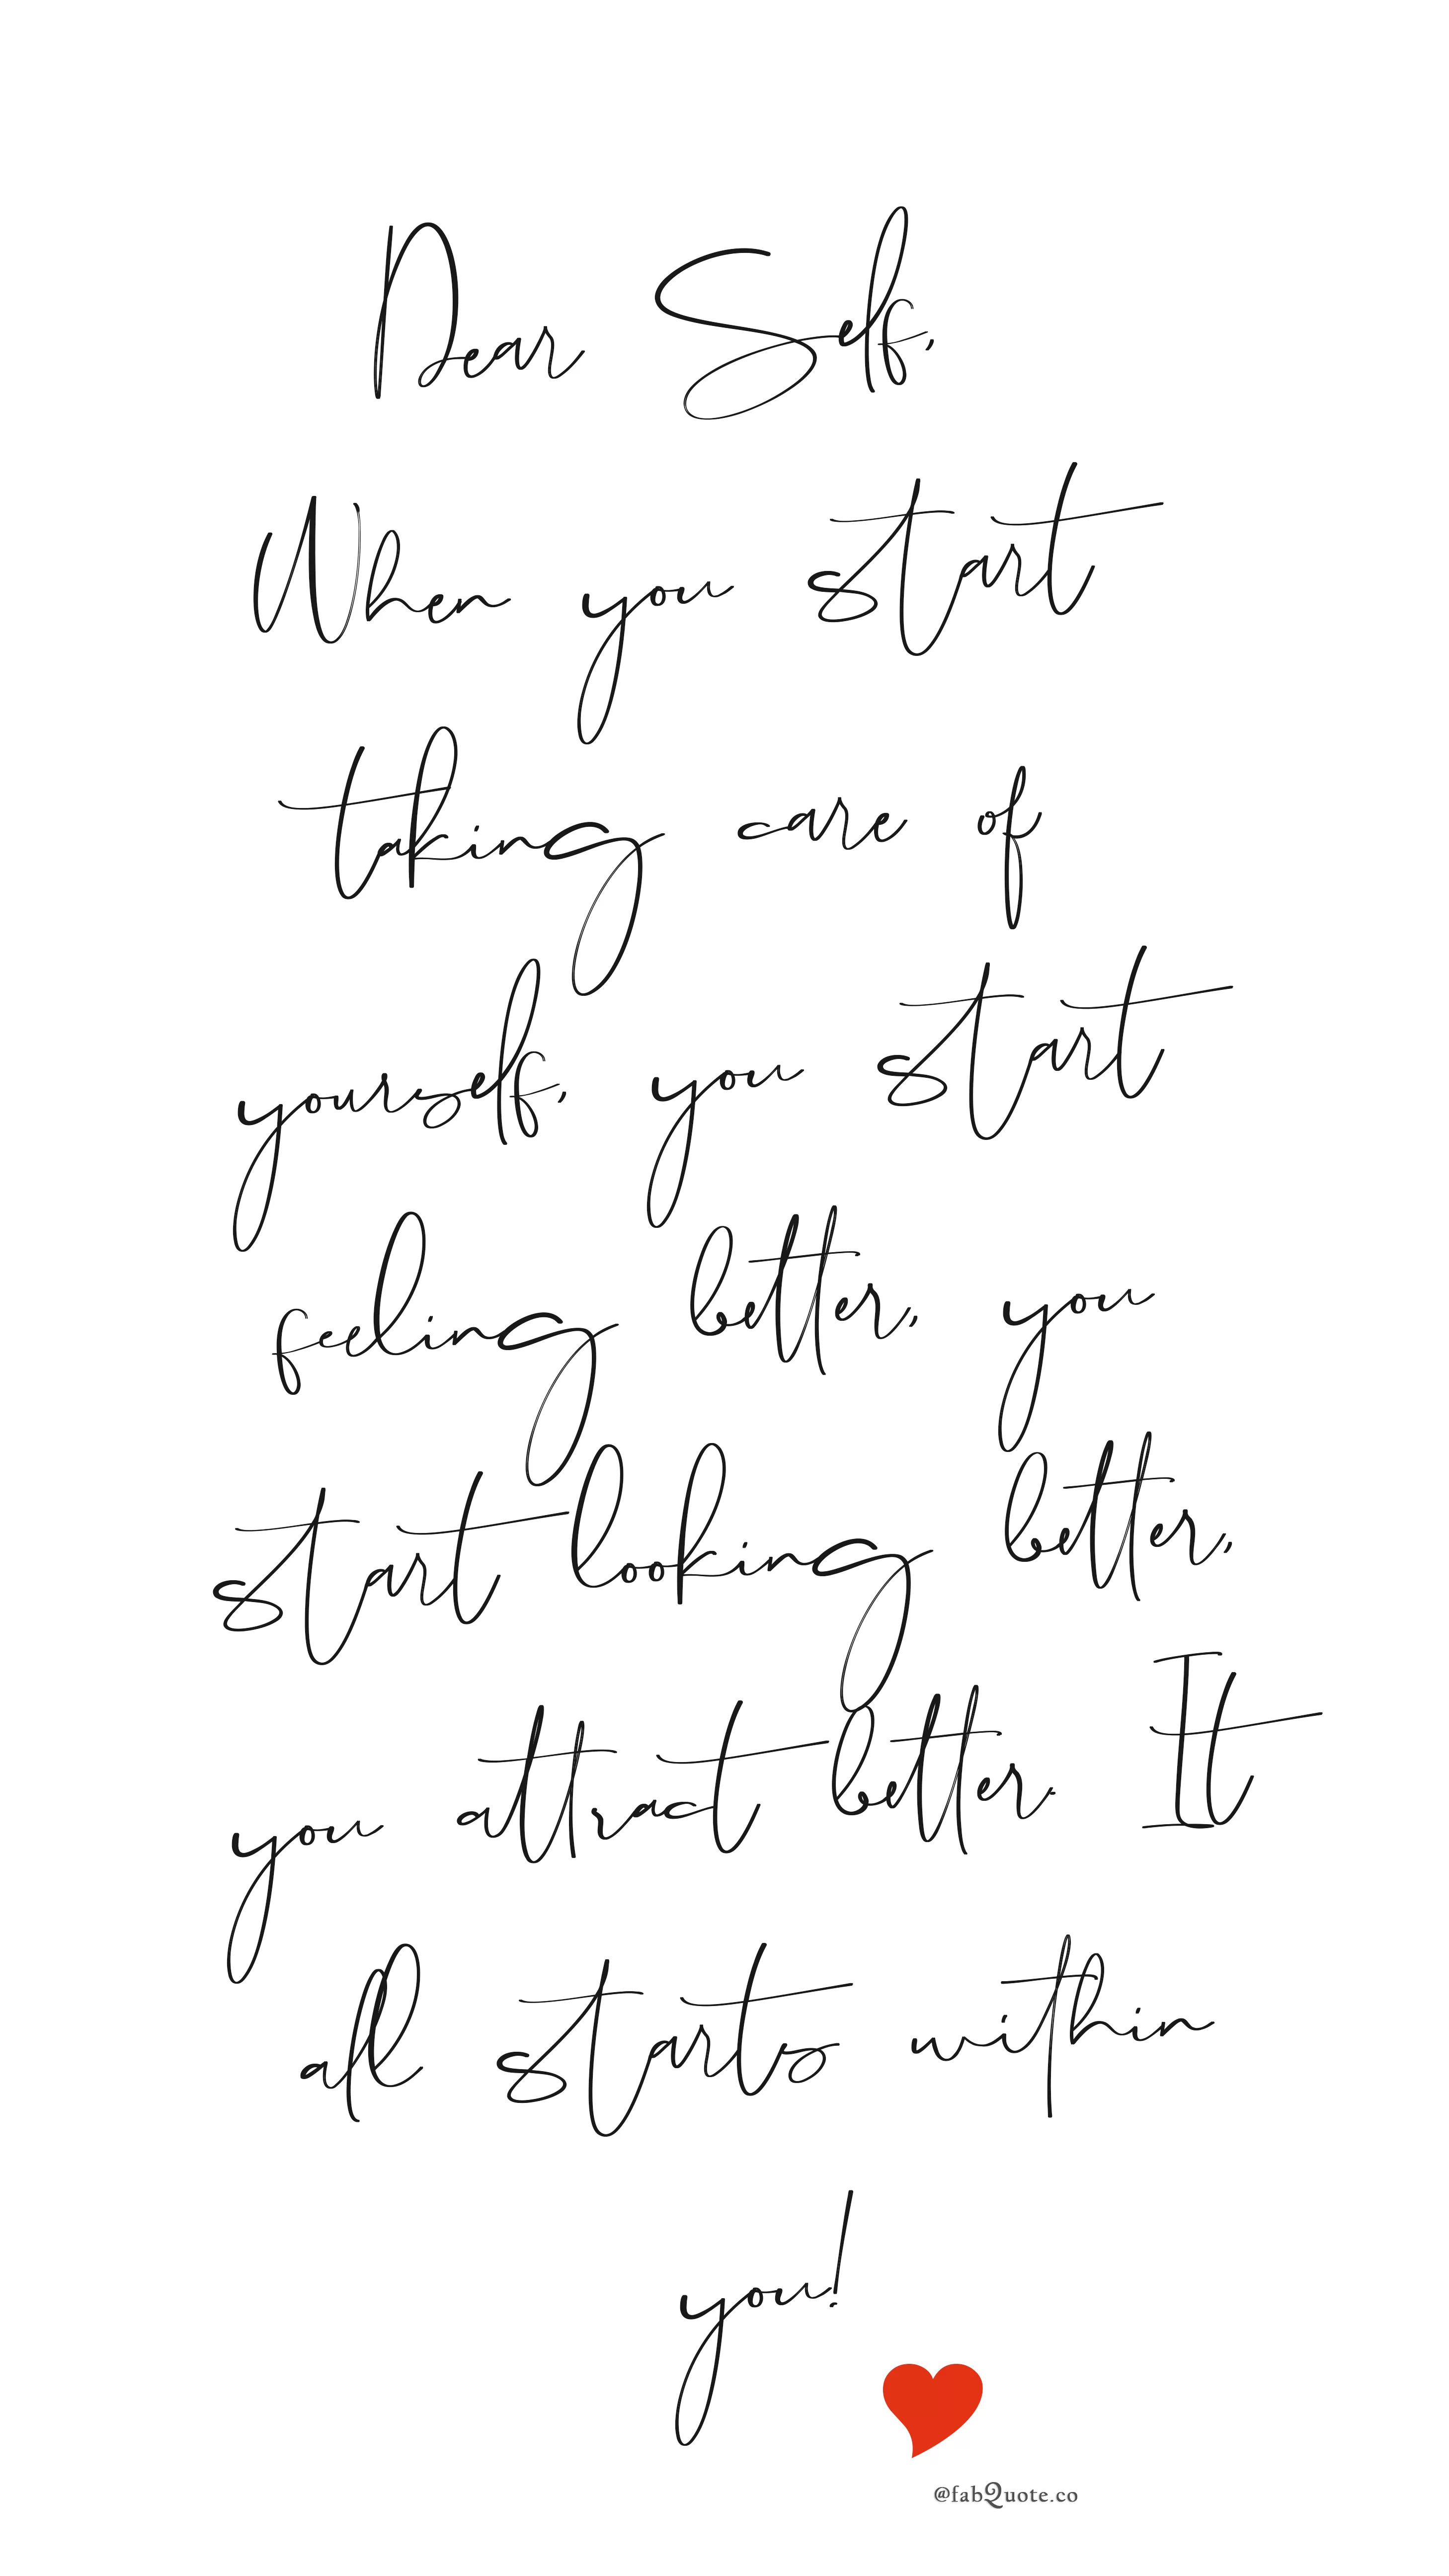 Dear Self,
When you start
taking care of
yourself, you start
feeling better, you
start looking better,
you attract better. It
all starts within
you!
@fabQuote.co